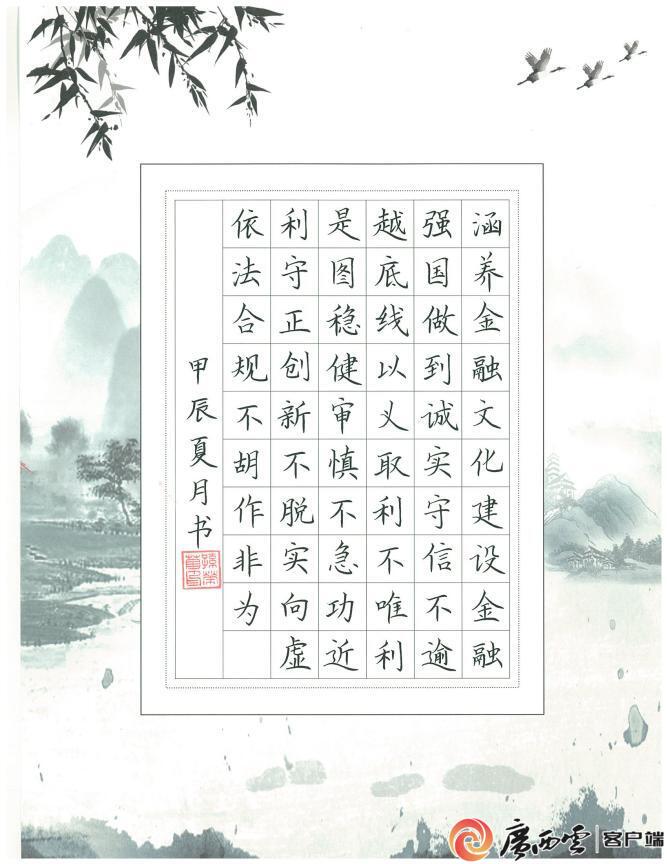 涵养金融文化建设金融
强国做到诚实守信不逾
越底线以义取利不唯利
是图稳健审慎不急功近
利守正创新不脱实向虚
依法合规不胡作非为
甲辰夏月书
廣西雲 客户端